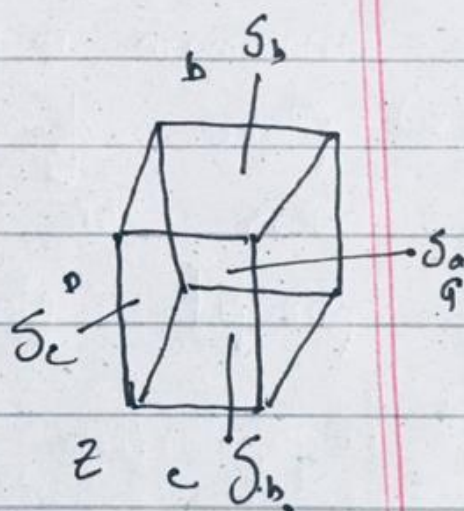 b S_b
S_a
a
D
S_c
z c S_b